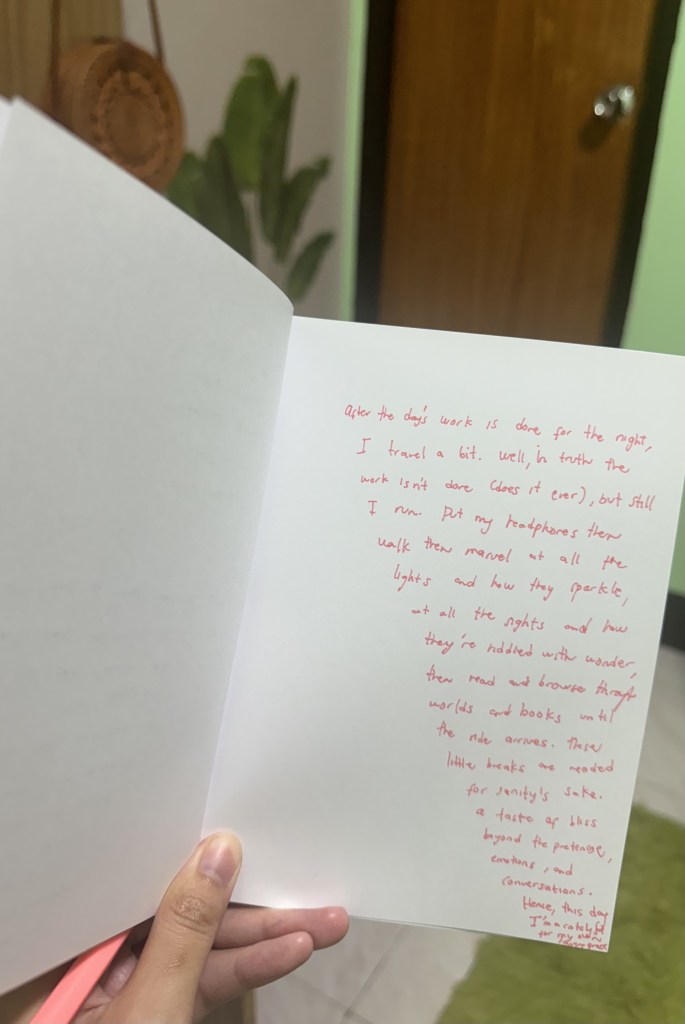 After the day's work is done for the night,
I travel a bit. Well, in truth the
work isn't done (does it ever), but still
I run. Put my headphones then
walk then marvel at all the
lights and how they sparkle,
at all the sights and how
they're riddled with wonder,
then read and browse through
worlds and books until
the ride arrives. These
little breaks are needed
for sanity's sake.
a taste of bliss
beyond the pretense,
emotions, and
conversations.
Hence, this day
I'm
for my own